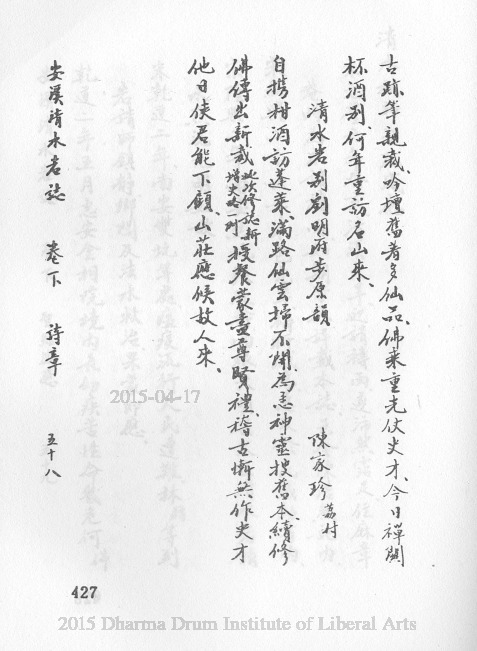 古跡筆親裁、吟壇舊眷多仙品、佛乘重光仗史才、今日禪關
杯酒別、何年重訪名山來、
清水岩別劉明府步原韻
陳家珍 荔村
自携柑酒訪蓬萊、滿路仙雲掃不開、為志神靈搜舊本、續修
佛傳出新裁、此次修誌新增史畧一列授餐蒙盡尊賢禮、稽古慚無作史才
他日使君能下顧、山莊應候故人來、
安溪清水岩誌 卷下 詩章 五十八
2015-04-17
427
2015 Dharma Drum Institute of Liberal Arts